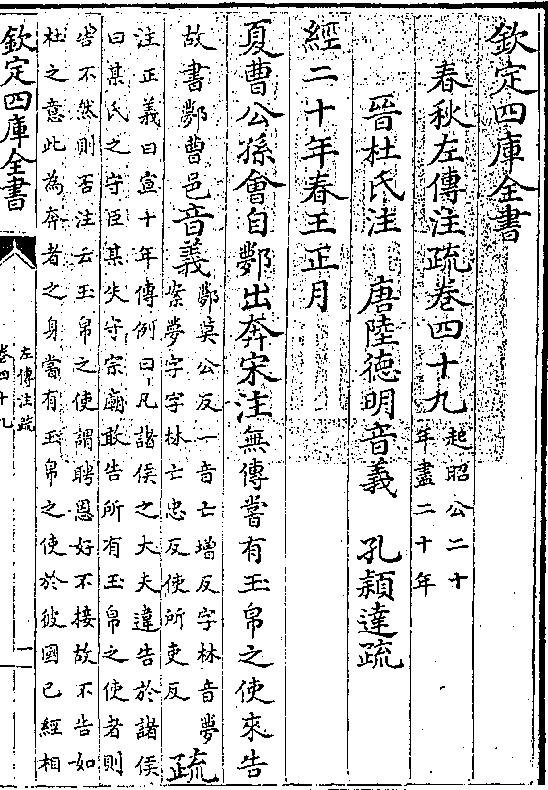 欽定四庫全書
春秋左傳注疏卷四十九起昭公二十
年盡二十年
晉杜氏注 唐陸德明音義 孔穎達疏
經二十年春王正月
夏曹公孫會自鄸出奔宋注無傳嘗有玉帛之使來告
故書鄸曹邑音義鄸莫公反一音亡增反字林音夢
案夢字字林亡忠反使所吏反疏
注正義曰宣十年傳例曰凡諸侯之大夫違告於諸侯
曰某氏之守臣某失守宗廟敢告所有玉帛之使者則
告不然則否注云玉帛之使謂聘恩好不接故不告如
杜之意此為奔者之身嘗有玉帛之使於彼國已經相
欽定四庫全書
左傳注疏
卷四十九
一